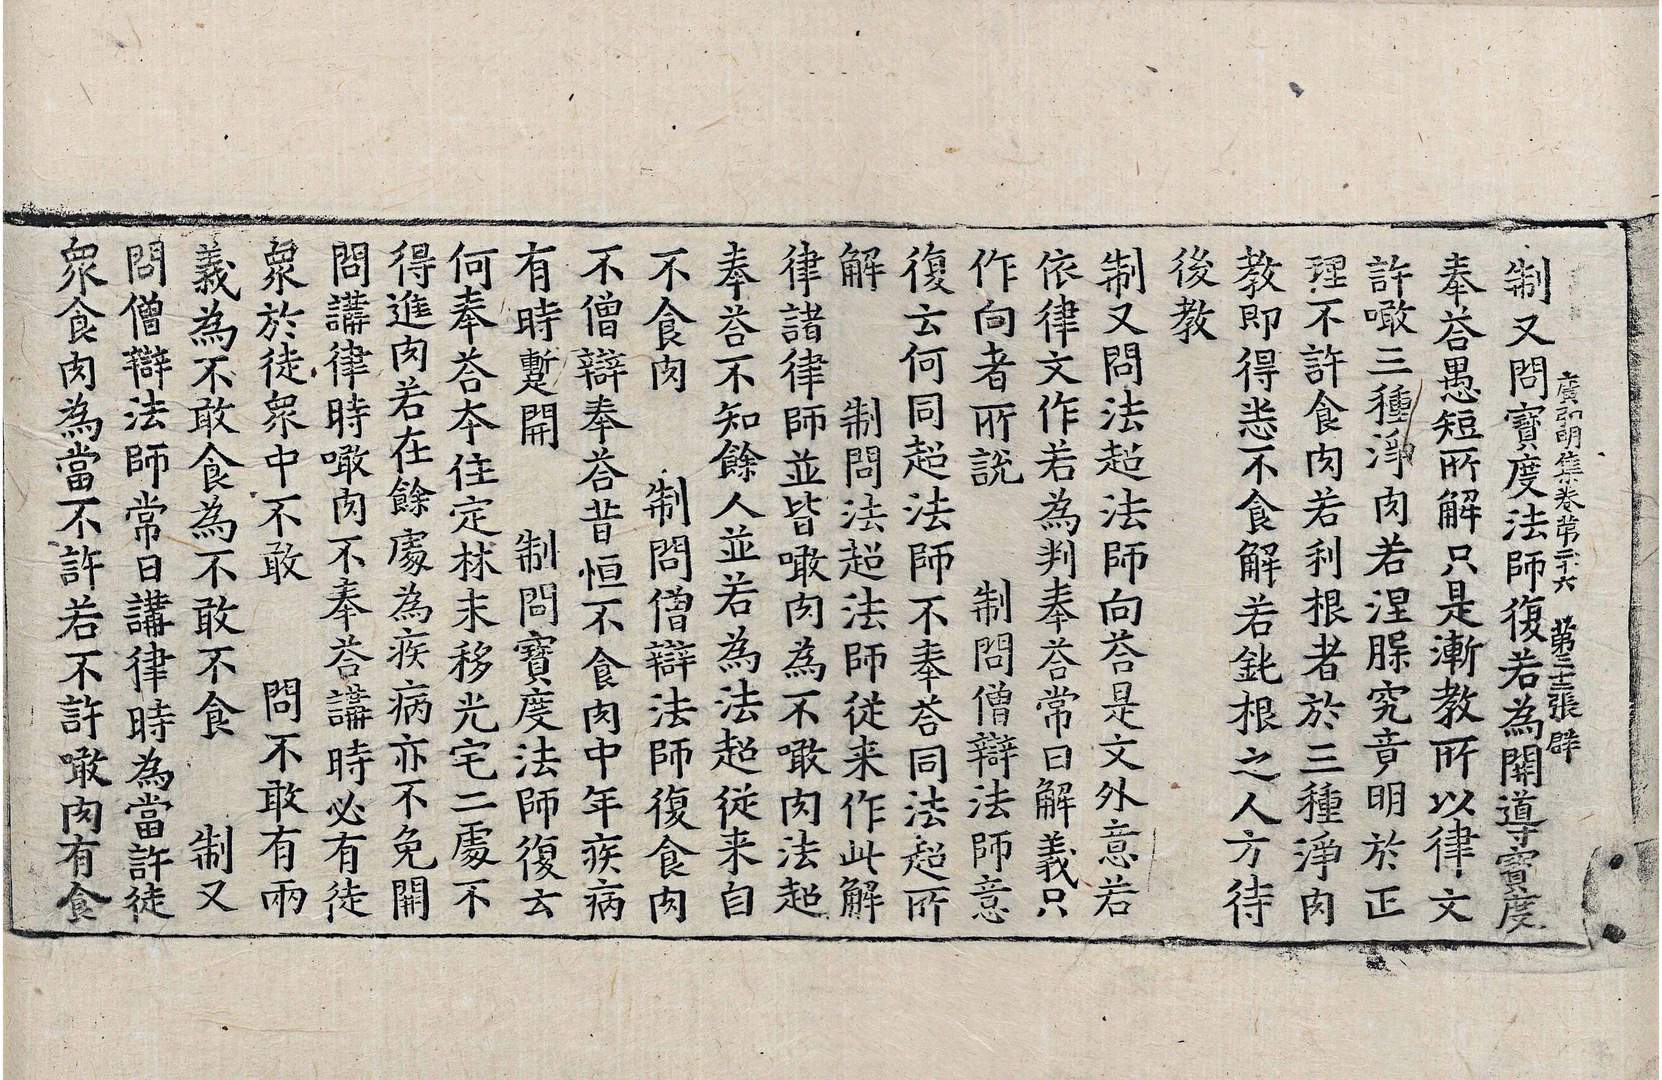 廣弘明集卷第二十六　第三十三張　辟
制又問寶度法師復若為開導寶度
奉荅愚短所解只是漸教所以律文
許噉三種淨肉若涅膝究竟明於正
理不許食肉若利根者於三種淨肉
教即得悉不食解若鈍根之人方待
後教
制又問法超法師向荅是文外意若
依律文作若為判奉荅常日解義只
作向者所說　制問僧辯法師意
復云何同超法師不奉荅同法超所
解　制問法超法師從来作此解
律諸律師並皆噉肉為不噉肉法超
奉荅不知餘人並若為法超從来自
不食肉　制問僧辯法師復食肉
不僧辯奉荅昔恒不食肉中年疾病
有時蹔開　制問寶度法師復云
何奉荅本住定林末移光宅二處不
得進肉若在餘處為疾病亦不免開
問講律時噉肉不奉荅講時必有徒
衆於徒衆中不敢　問不敢有兩
義為不敢食為不敢不食　制又
問僧辯法師常日講律時為當許徒
衆食肉為當不許若不許噉肉有食